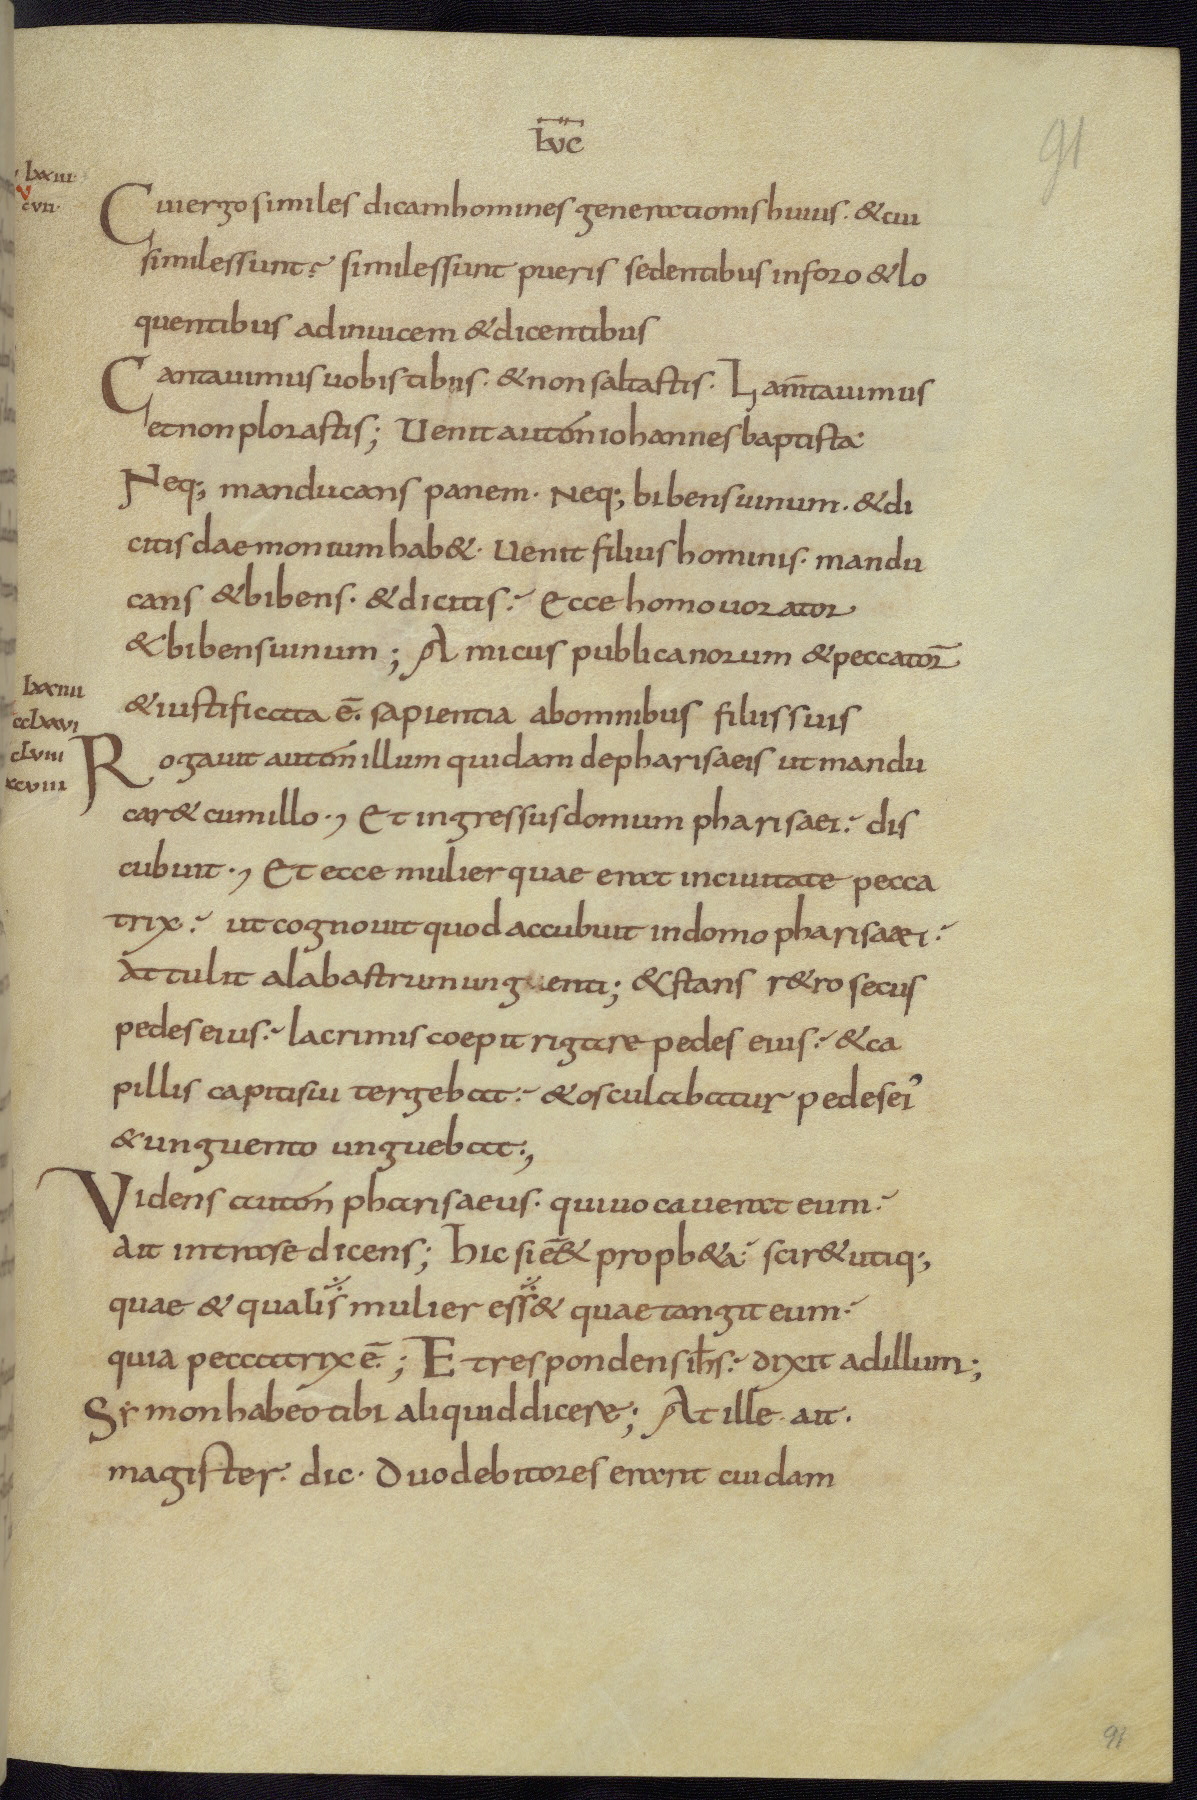 LVC
91
lxxiii
v
cvii
Cui ergo similes dicam homines generationis huius. & cui
similes sunt? similes sunt pueris sedentibus in foro & lo
quentibus ad inuicem & dicentibus
Cantauimus uobis tibiis. & non saltastis. Lam̄tauimus
et non plorastis; Uenit autem iohannes baptista
Neq; manducans panem. Neq; bibens uinum. & di
citis daemonium hab&. Uenit filius hominis. mandu
cans & bibens. & dicitis: Ecce homo uorator
& bibens uinum; Amicus publicanorum & peccator̄
lxxiiii
& iustificata ē. sapientia ab omnibus filiis suis
cclxxvi
clviii
xcviiii
Rogauit autem illum quidam de pharisaeis ut mandu
car& cum illo., Et ingressus domum pharisaei: dis
cubuit., Et ecce mulier quae erat in ciuitate pecca
trix: ut cognouit quod accubuit in domo pharisaei:
Attulit alabastrum unguenti; & stans r&ro secus
pedes eius: lacrimis coepit rigare pedes eius: & ca
pillis capitis iu tergebat: & osculabatur pedes ei'
& unguento unguebat.,
Videns autem pharisaeus. qui uocauerat eum:
ait intra se dicens; hic si ēē& proph&a: scir& utiq;
quae & qualis mulier ess& quae tangit eum:
quia peccatrix ē.; Et respondens ih̄s: dixit ad illum;
Simon habeo tibi aliquid dicere; At ille ait.
magister. dic. Duo debitores erant cuidam
91